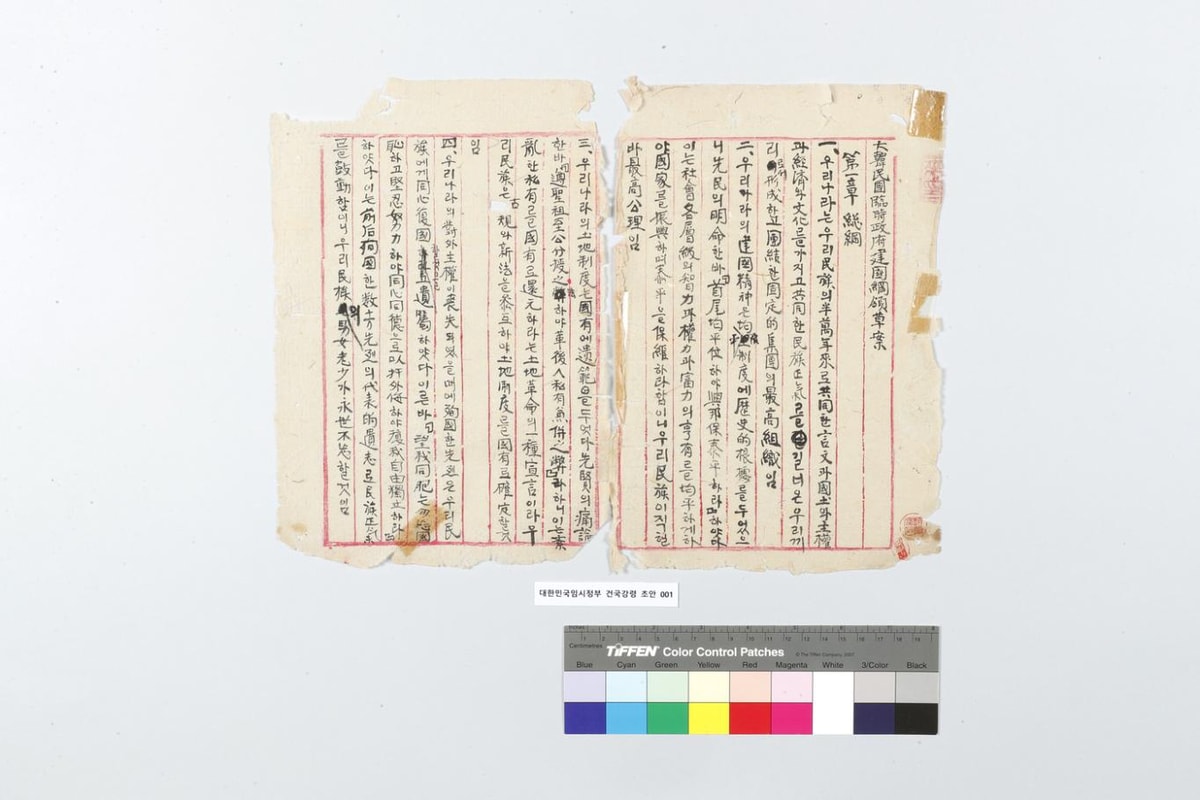 大韓民國臨時政府建國綱領草案
第一章 總綱
一、우리나라는우리民族의半萬年來로共同한言文과國土와主權
과經濟와文化를가지고共同한民族正氣를길너온우리끼
리로서形成한고團結한固定的集團의最高組織임
二、우리나라의建國精神은均制度에歷史的根據를두었으
니先民의明命한바首尾均平位하야興邦保泰平하라하얏다
이는社會各層級의智力과權力과富力의享有를均平하게하
야國家를振興하며泰平을保維하라함이니우리民族이직힐
바最高公理임
三、우리나라의土地制度는國有에遺範을두엇다先賢의痛論
한바遵聖祖至公分授之法하야革後人私有兼倂之弊라하니이는紊
亂한私有를國有로還元하라는土地革命의一種宣言이라우
리民族은古規와新法을參互하야土地制度를國有로確定할것
임
四、우리나라의對外主權이喪失되였을때에殉國한先烈은우리民
族에게同心復國遺囑하얏다이른바望我同胞는勿忘國
恥하고堅忍努力하야同心同德으로以扞外侮하야復我自由獨立하라
하얏다이는前后殉國한數十万先烈의代表的遺志로民族正氣
를鼓動함이니우리民族의男女老少가永世不忘할것임
대한민국임시정부 건국강령 초안 001
Centimetres
TIFFEN Color Control Patches
© The Tiffen Company, 2007
Blue Cyan Green Yellow Red Magenta White 3/Color Black